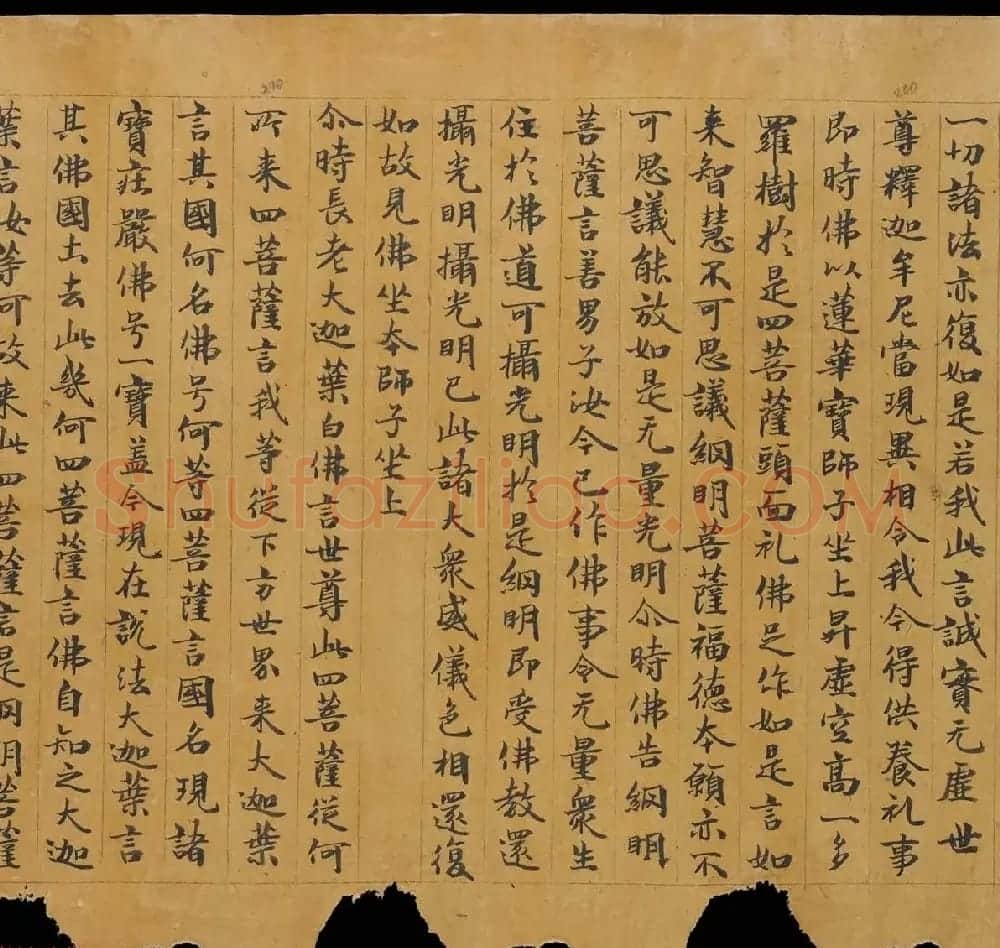 一切諸法亦復如是若我此言誠實无虛世
尊釋迦牟尼當現異相令我今得供養礼事
即時佛以蓮華寶師子坐上昇虛空高一多
羅樹於是四菩薩頭面礼佛足作如是言如
来智慧不可思議網明菩薩福德本願亦不
可思議能放如是无量光明尒時佛告網明
菩薩言善男子汝今已作佛事令无量衆生
住於佛道可攝光明於是網明即受佛教還
攝光明攝光明已此諸大衆威儀色相還復
如故見佛坐本師子坐上
尒時長老大迦葉白佛言世尊此四菩薩從何
所来四菩薩言我等從下方世界来大迦葉
言其國何名佛号何等四菩薩言國名現諸
寶莊嚴佛号一寶盖今現在説法大迦葉言
其佛國土去此幾何四菩薩言佛自知之大迦
葉言汝等何故来此四菩薩言是網明菩薩
200
210
Shufaziliao.COM